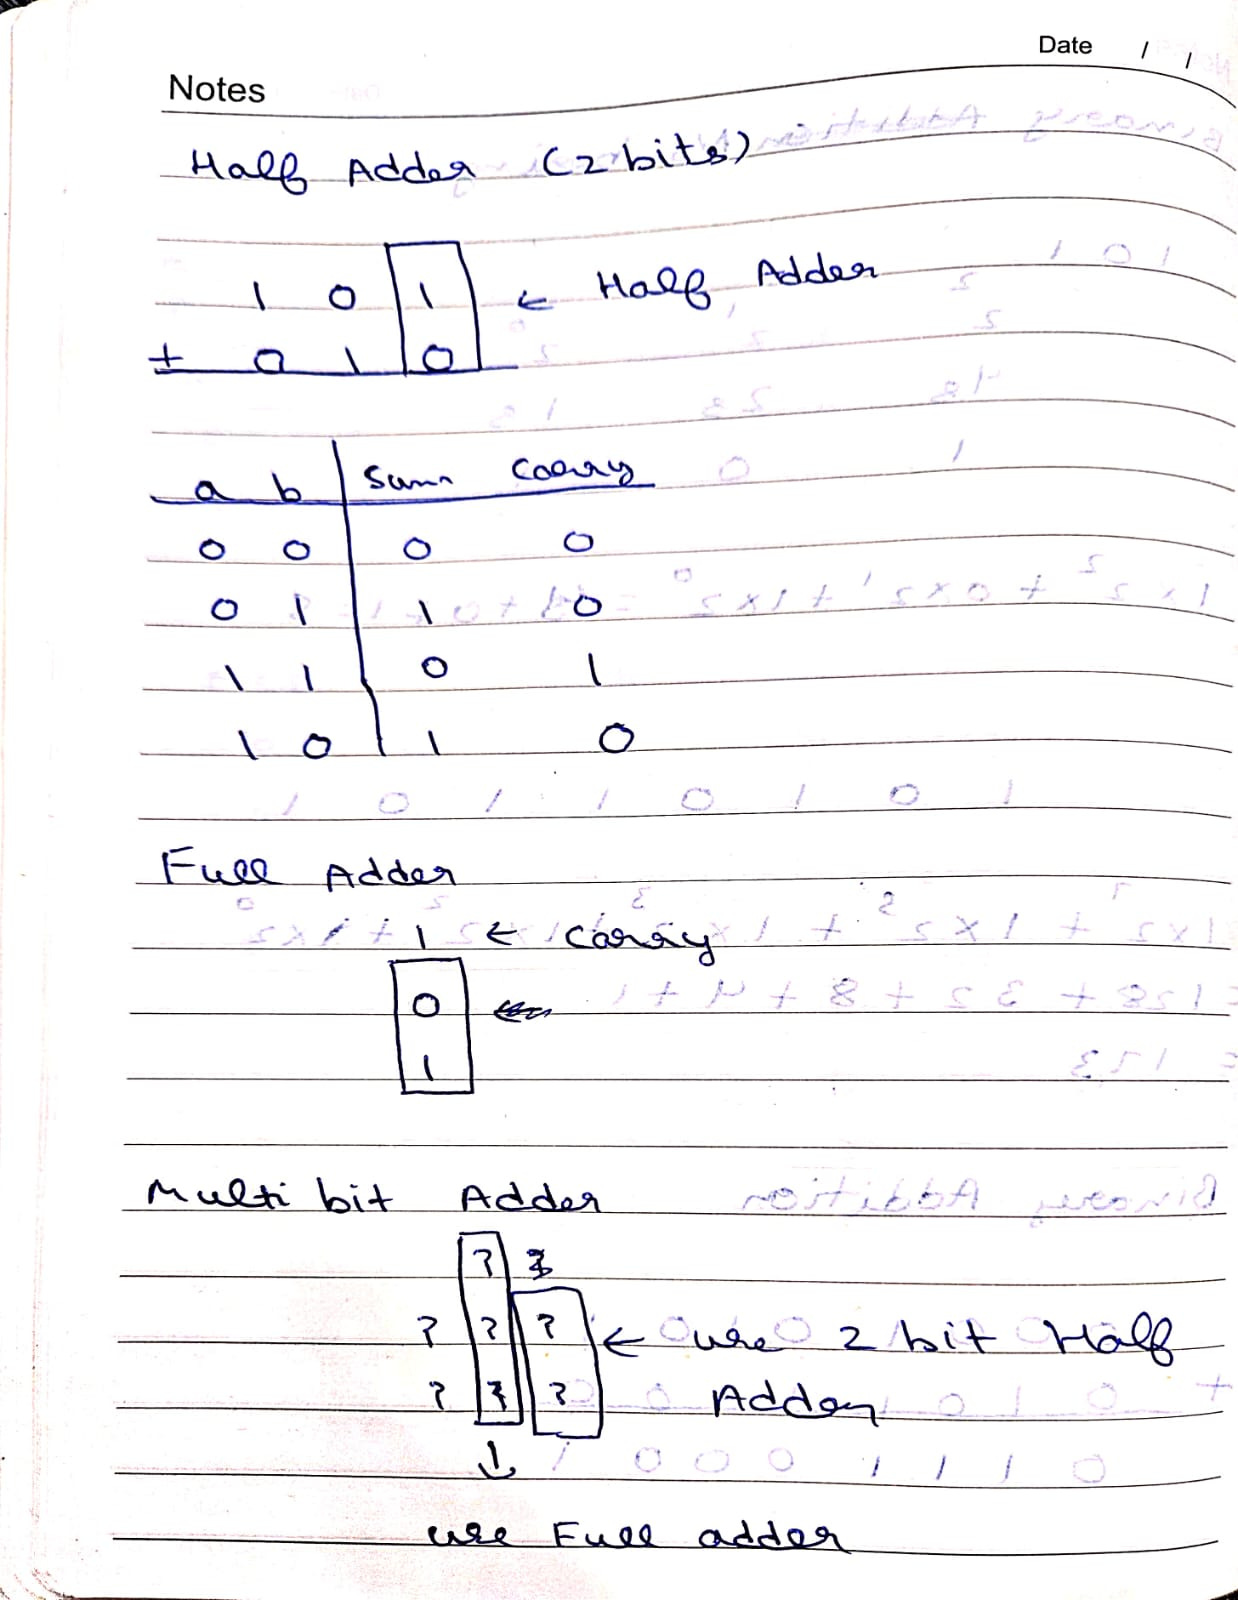 Date / /
Notes
Half Adder (2 bits)
1 0 1 ← Half Adder
+ 0 1 0
a b Sum Carry
0 0 0 0
0 1 1 0
1 1 0 1
1 0 1 0
Full Adder
1 ← Carry
0 ←
1
Multi bit Adder
?
? ? ? ← use 2 bit Half
? ? ? Adder
↓
use Full adder